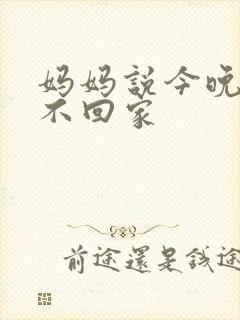 妈妈説今晚
不回家
前途還是钱途